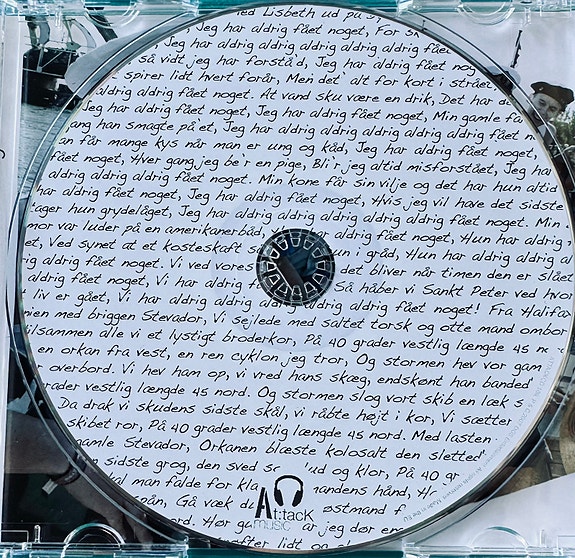 med Lisbeth ud på
Jeg har aldrig fået noget, For
Jeg har aldrig aldrig aldrig aldrig aldrig fået
så vidt jeg har forstå'd, Jeg har aldrig fået noget
spirer lidt hvert forår, Men det' alt for kort i strået,
aldrig aldrig fået noget. At vand sku være en drik, Det har de
Jeg har aldrig fået noget, Jeg har aldrig fået noget, Min gamle fa
gang han smagte på'et, Jeg har aldrig aldrig aldrig aldrig aldrig fået n
an får mange kys når man er ung og kåd, Jeg har aldrig fået noget,
fået noget, Hver gang jeg be'r en pige, Bli'r jeg altid misforstået, Jeg har
aldrig aldrig aldrig fået noget. Min kone får sin vilje og det har hun altid
har aldrig fået noget, Jeg har aldrig fået noget, Hvis jeg vil have det sidste
tager hun grydelåget, Jeg har aldrig aldrig aldrig aldrig fået noget. Min
mor var luder på en amerikanerbåd, har aldrig fået noget, Hun har aldrig
et, Ved synet at et kosteskaft un i gråd, Hun har aldrig aldrig al
aldrig fået noget. Vi ved vores det bliver når timen den er slået
aldrig fået noget, Vi har aldrig få Så håber vi Sankt Peter ved hvor
liv er gået, Vi har aldrig aldrig aldrig aldrig fået noget! Fra Halifax
nien med briggen Stevador, Vi sejlede med saltet torsk og otte mand ombor
ilsammen alle vi et lystigt broderkor, På 40 grader vestlig længde 45 no
en orkan fra vest, en ren cyklon jeg tror, Og stormen hev vor gam
overbord. Vi hev ham op, vi vred hans skæg, endskønt han banded
rader vestlig længde 45 nord. Og stormen slog vort skib en læk s
Da drak vi skudens sidste skål, vi råbte højt i kor, Vi sætter
skibet ror, På 40 grader vestlig længde 45 nord. Med lasten
gamle Stevador, Orkanen blæste kolosalt den slettede
sidste grog, den sved so ud og klor, På 40 gr
al man falde for kla mandens hånd, Hr
spån, Gå væk du østmand f
rd. Hør gu ar jeg dør en
efter lidt og
Attack
music